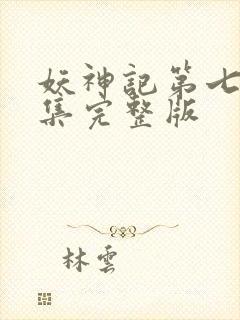 妖神記第七
集完整版
林雲